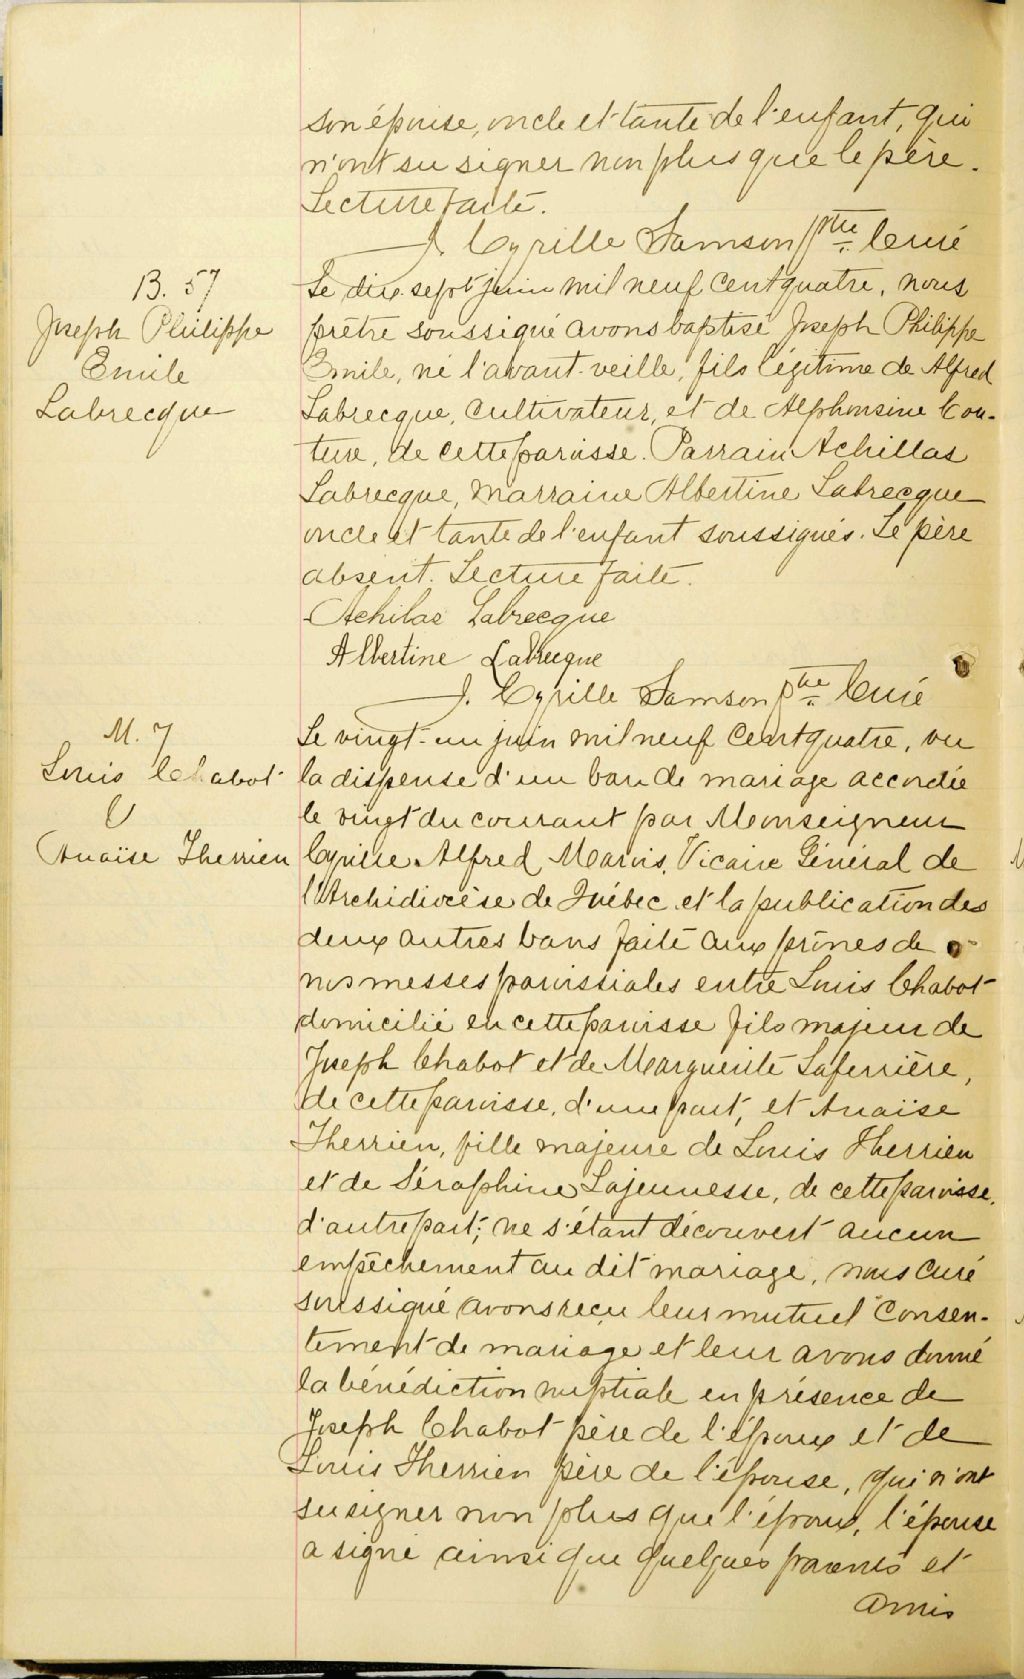 son épouse, oncle et tante de l'enfant, qui
n'ont su signer non plus que le père.
Lecture faite.
J. Cyrille Samson ptre Curé
B. 57
Joseph Philippe
Emile
Labrecque
Le dix-sept juin mil neuf cent quatre, nous
prêtre soussigné avons baptisé Joseph Philippe
Emile, né l'avant-veille, fils légitime de Alfred
Labrecque, cultivateur, et de Alphonsine Cou-
ture, de cette paroisse. Parrain Achillas
Labrecque, marraine Albertine Labrecque
oncle et tante de l'enfant soussignés. Le père
absent. Lecture faite.
Achilas Labrecque
Albertine Labrecque
J. Cyrille Samson ptre Curé
M. 7
Louis Chabot
&
Anaïse Therrien
Le vingt-un juin mil neuf cent quatre, vu
la dispense d'un ban de mariage accordée
le vingt du courant par Monseigneur
Cyrille Alfred Marois, Vicaire Général de
l'Archidiocèse de Québec et la publication des
deux autres bans faite aux prônes de
nos messes paroissiales entre Louis Chabot
domicilié en cette paroisse fils majeur de
Joseph Chabot et de Marguerite Laferrière,
de cette paroisse, d'une part, et Anaïse
Therrien, fille majeure de Louis Therrien
et de Séraphine Lajeunesse, de cette paroisse,
d'autre part; ne s'étant découvert aucun
empêchement au dit mariage, nous curé
soussigné avons reçu leur mutuel consen-
tement de mariage et leur avons donné
la bénédiction nuptiale en présence de
Joseph Chabot père de l'époux et de
Louis Therrien père de l'épouse, qui n'ont
su signer non plus que l'époux, l'épouse
a signé ainsi que quelques parents et
amis